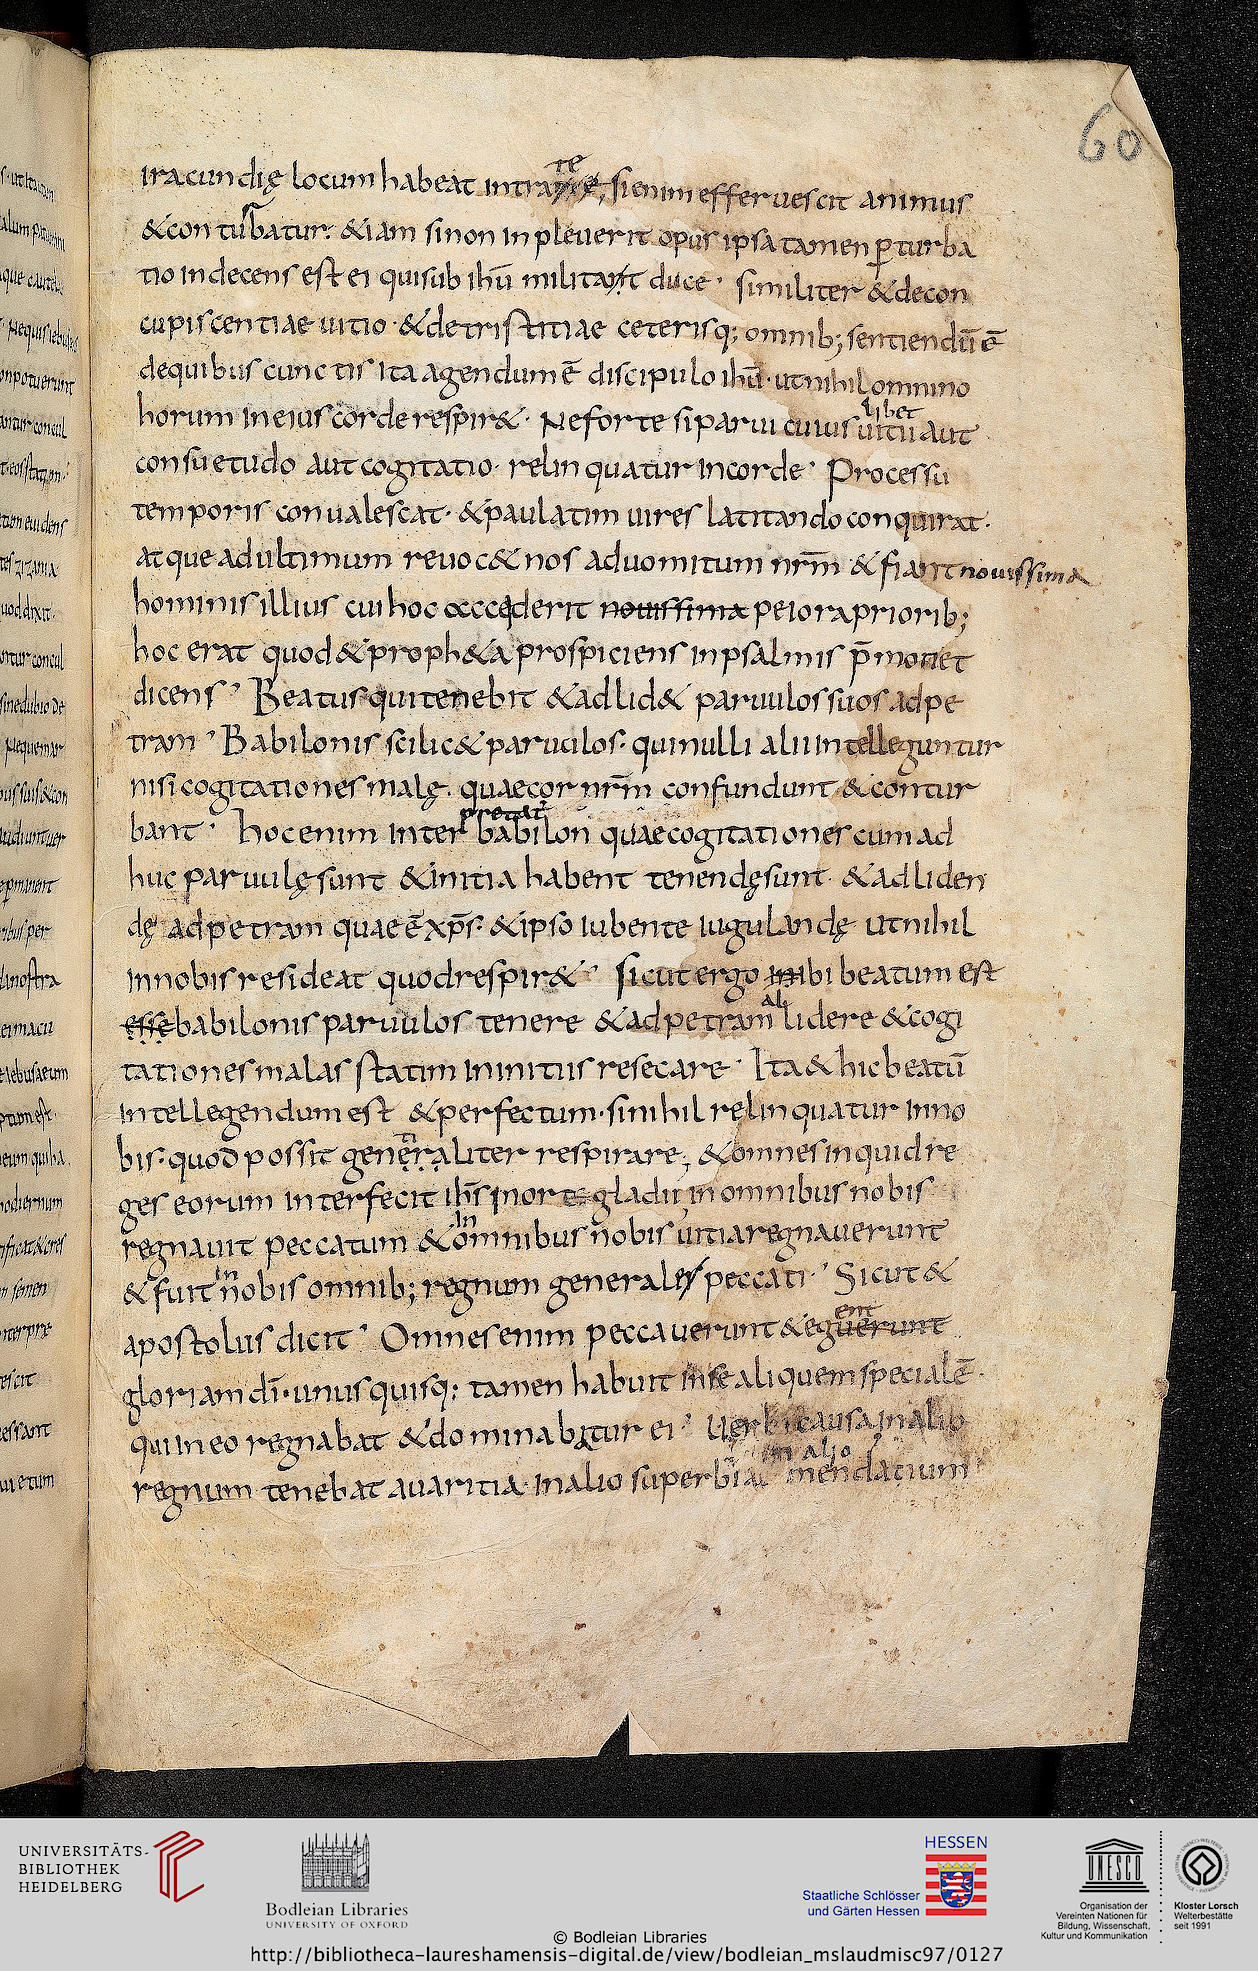 60
iracundię locum habeat intra te; si enim efferuescit animus
& conturbatur. & iam si non inpleuerit opus ipsa tamen ꝑturba
tio indecens est ei qui sub ihū militat duce · similiter & de con
cupiscentiae uitio · & de tristitiae ceterisq; omnib; sentiendū ē
de quibus cunctis ita agendum ē discipulo ihū · ut nihil omnino
horum in eius corde respir& · Ne forte si parui cuiuslibet uitii aut
consuetudo aut cogitatio · relinquatur in corde · Processu
temporis conualescat · & paulatim uires latitando conquirat ·
atque ad ultimum reuoc& nos ad uomitum nr̄m & fiant nouissima
hominis illius cui hoc acciderit nouissima peiora priorib;
hoc erat quod & proph&a prospiciens in psalmis p̄mouet
dicens · Beatus qui tenebit & adlid& paruulos suos ad pe
tram · Babilonis scilic& paruulos · qui nulli alii intelleguntur
nisi cogitationes malę · quae cor nr̄m confundunt & contur
bant · hoc enim interpretat babilon quae cogitationes cum ad
huc paruulę sunt & initia habent tenendę sunt · & adliden
dę ad petram quae ē xp̄s · & ipso iubente iugulandę ut nihil
in nobis resideat quod respir& · sicut ergo ibi beatum est
esse babilonis paruulos tenere & ad petram allidere & cogi
tationes malas statim in initiis resecare · Ita & hic beatū
intellegendum est & perfectum · si nihil relinquatur inno
bis · quod possit generaliter respirare, & omnes inquid re
ges eorum interfecit ih̄s in ore gladii, in omnibus nobis
regnauit peccatum & in omnibus nobis uitia regnauerunt
& fuit in nobis omnib; regnum generale peccati · Sicut &
apostolus dicit · Omnes enim peccauerunt & egent
gloriam dī · unusquisq; tamen habuit in se aliquem specialē ·
qui in eo regnabat & dominabatur ei · uerbi causa, in alio
regnum tenebat auaritia · in alio superbia in alio mendatium
UNIVERSITÄTS-
BIBLIOTHEK
HEIDELBERG
Bodleian Libraries
UNIVERSITY OF OXFORD
HESSEN
Staatliche Schlösser
und Gärten Hessen
UNESCO
Organisation der
Vereinten Nationen für
Bildung, Wissenschaft,
Kultur und Kommunikation
Kloster Lorsch
Welterbestätte
seit 1991
© Bodleian Libraries
http://bibliotheca-laureshamensis-digital.de/view/bodleian_mslaudmisc97/0127